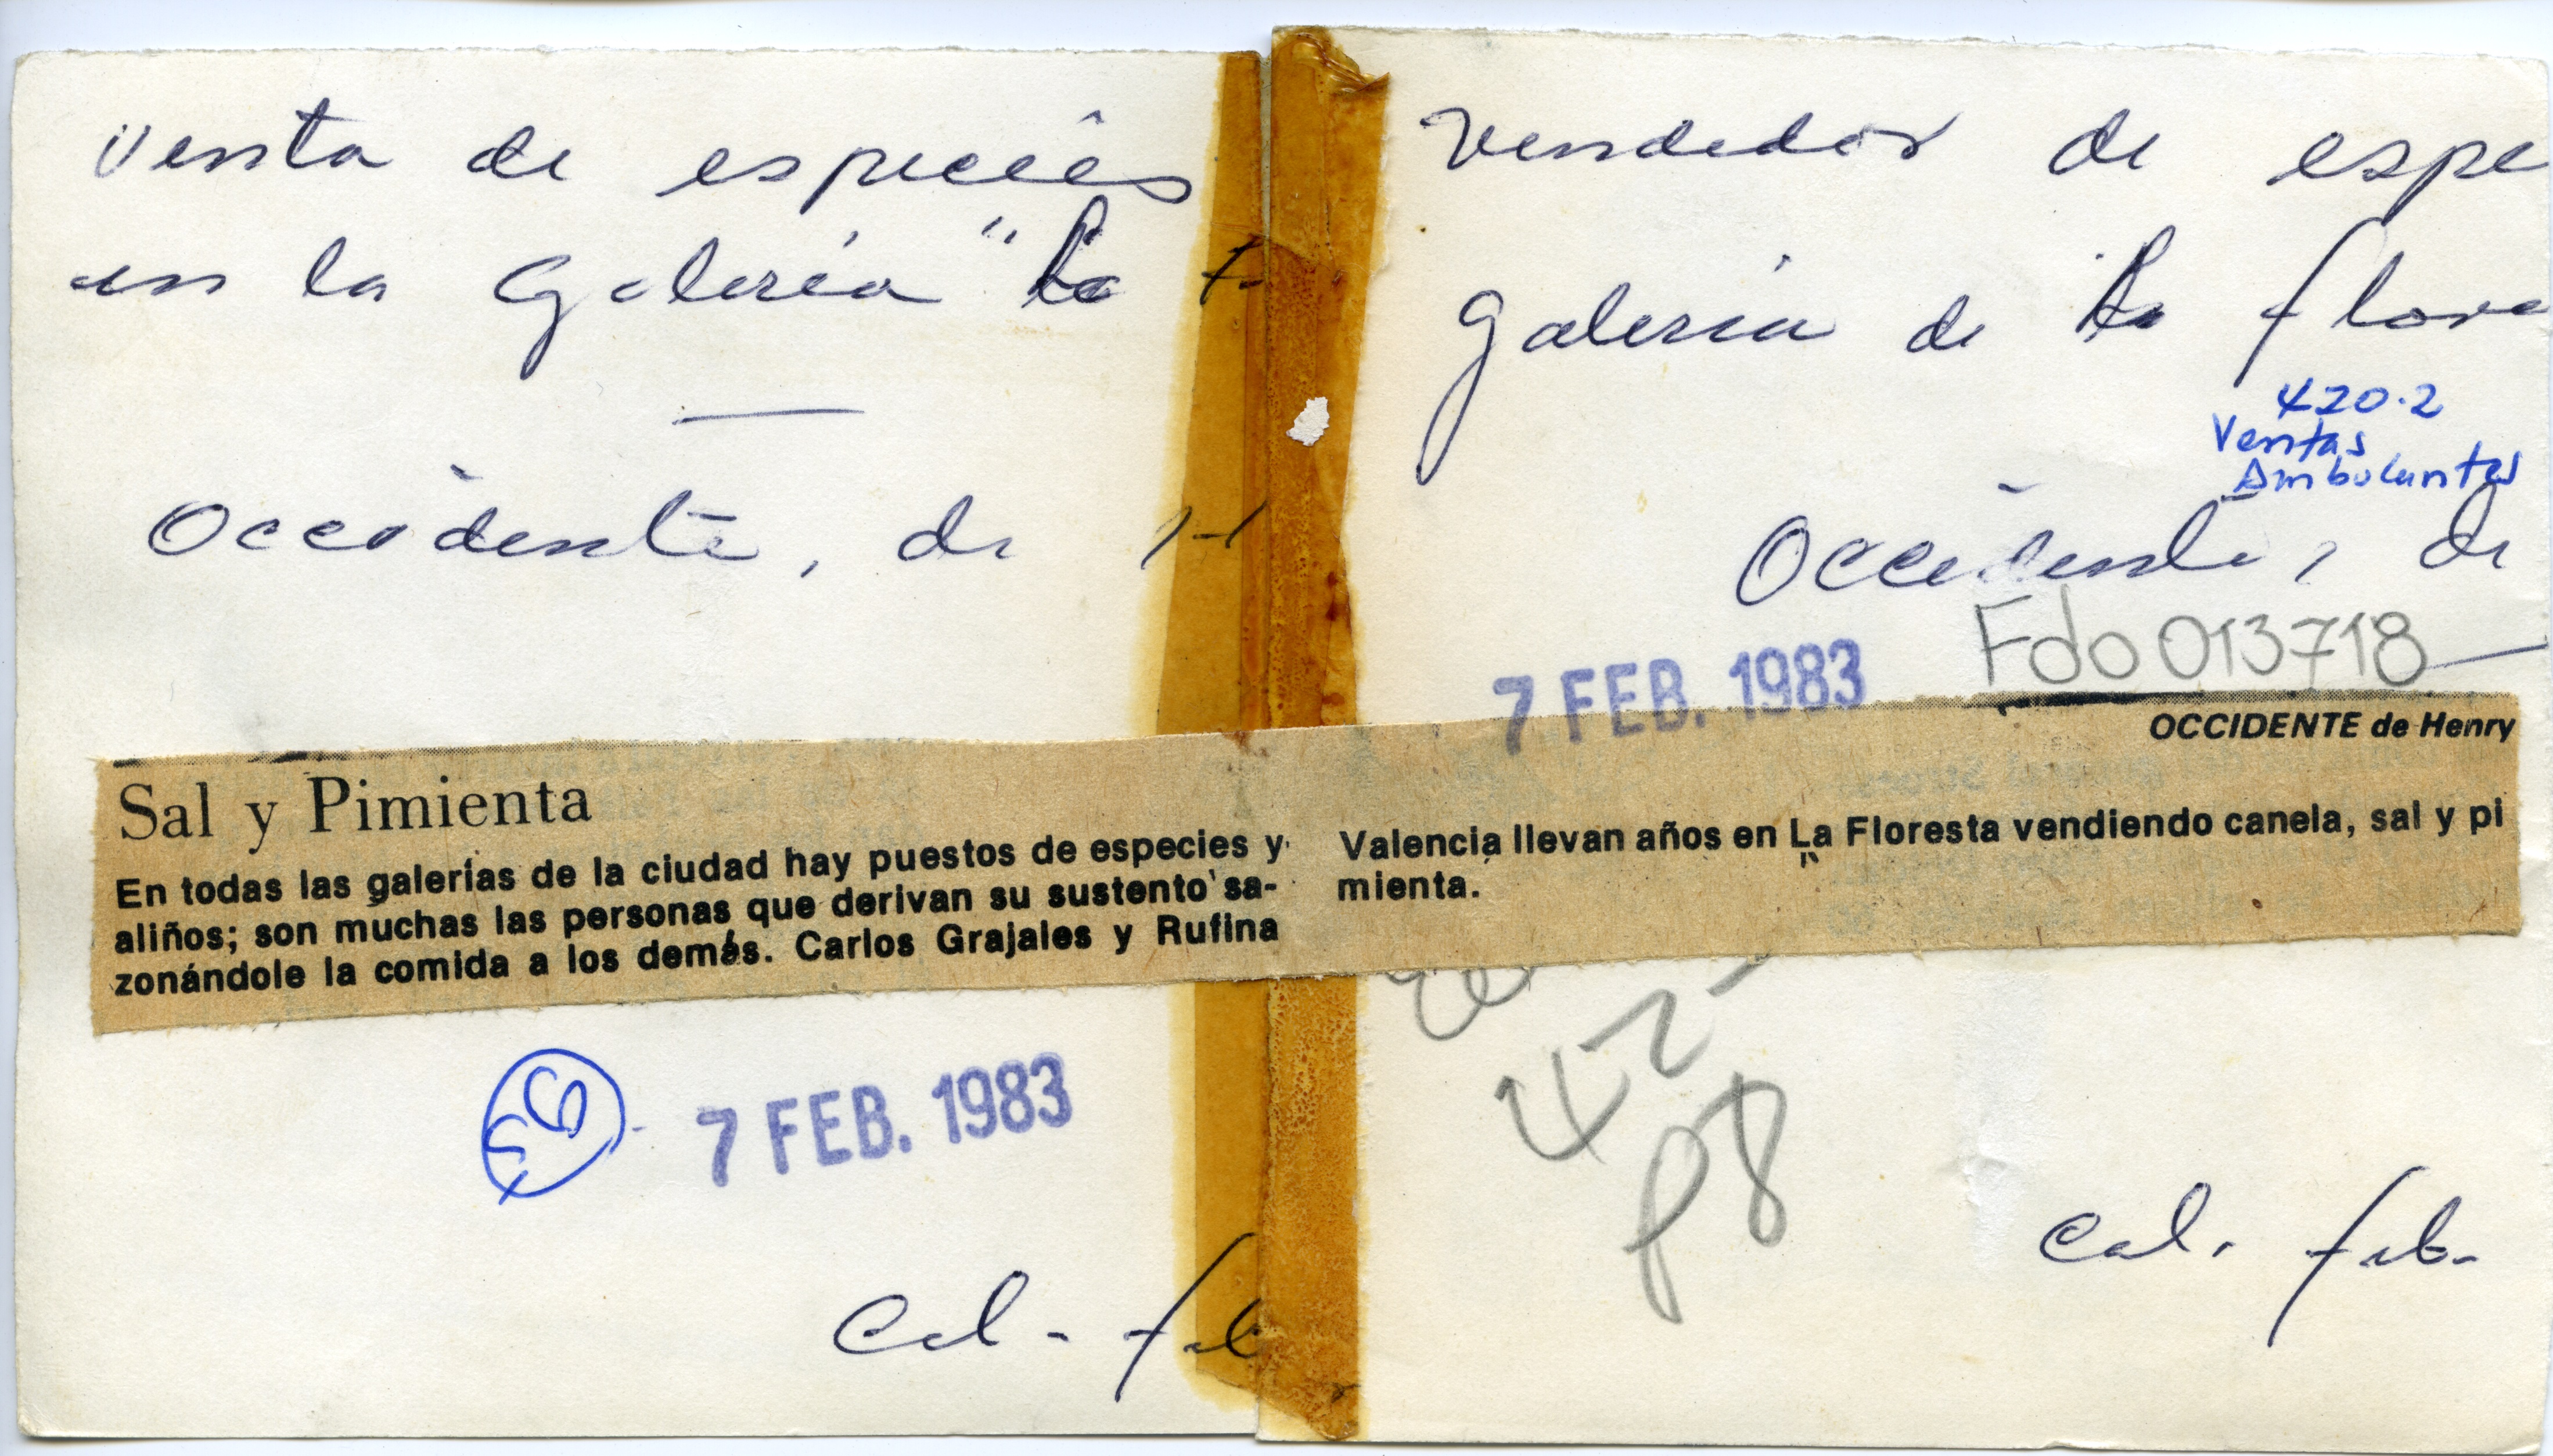 Venta de especies
en la Galería "La F
Occidente, de H
Sal y Pimienta
En todas las galerías de la ciudad hay puestos de especies y
aliños; son muchas las personas que derivan su sustento sa-
zonándole la comida a los demás. Carlos Grajales y Rufina
7 FEB. 1983
Cal - feb
Vendedor de espe
Galeria de la flore
420.2
Ventas
Ambulantes
Occidente, de
Fdo 013718
7 FEB. 1983
OCCIDENTE de Henry
Valencia llevan años en La Floresta vendiendo canela, sal y pi
mienta.
42
P8
Cal. feb.